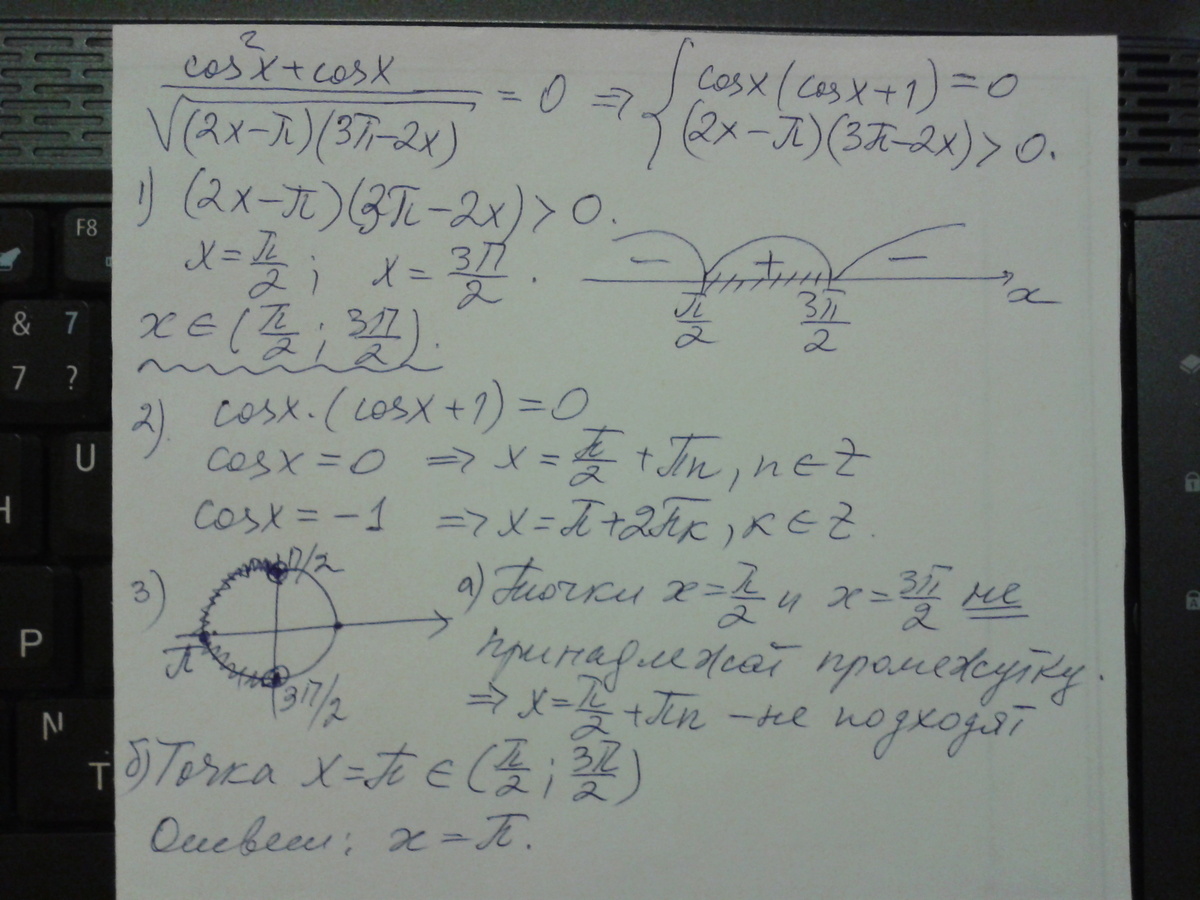 (cos²x + cosx) / √((2x−π)(3π−2x)) = 0 ⇒ { cosx(cosx+1) = 0
(2x−π)(3π−2x) > 0.
1) (2x−π)(3π−2x) > 0.
x = π/2 ; x = 3π/2 .
− + −
π/2 3π/2 x
x ∈ (π/2 ; 3π/2).
2). cosx·(cosx+1) = 0
cosx = 0 ⇒ x = π/2 + πn, n ∈ Z
cosx = −1 ⇒ x = π + 2πк, к ∈ Z.
3) π/2
π
3π/2
а) Точки x = π/2 и x = 3π/2 не
принадлежат промежутку.
⇒ x = π/2 + πn − не подходят
б) Точка x = π ∈ (π/2 ; 3π/2)
Ответ: x = π.
F8
& 7
7 ?
U
H
P
N
T